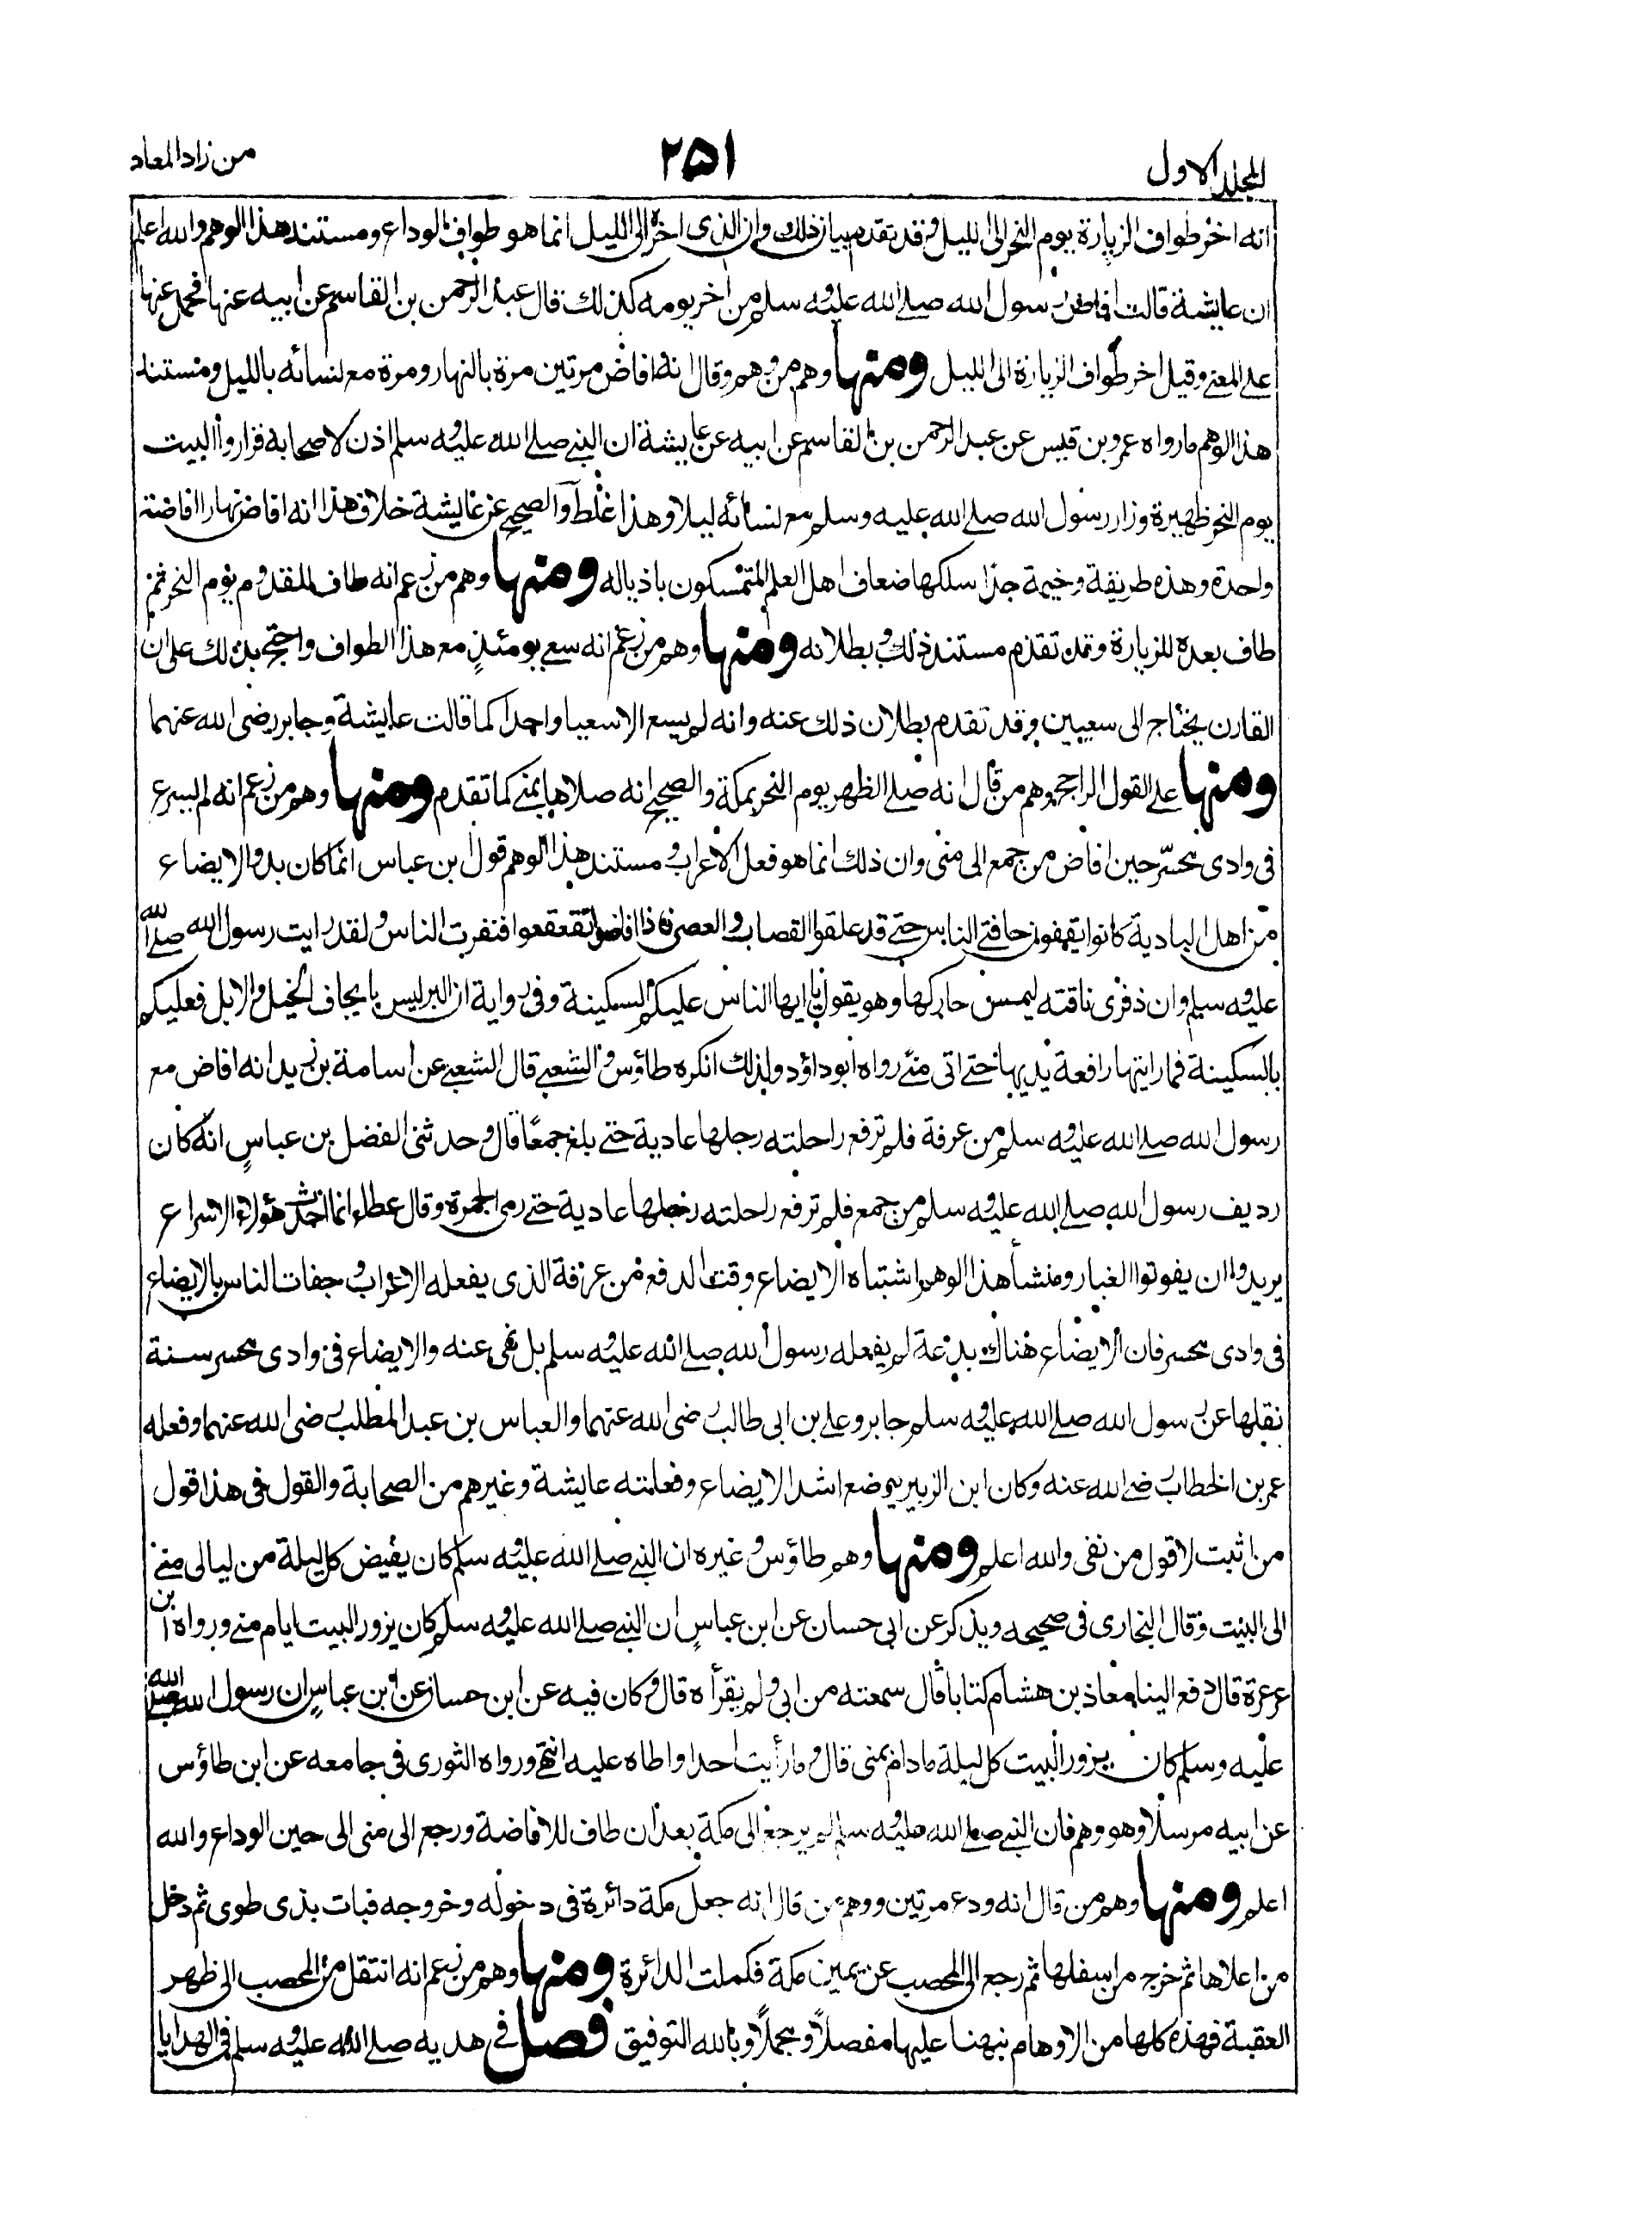 المجلد الاول
٢٥١
من زاد المعاد
انه اخر طواف الزيارة يوم النحر الى الليل وقد تقدم بيان ذلك وان الذى اخره الى الليل انما هو طواف الوداع ومستند هذا الوهم والله اعلم
ان عايشة قالت افاض رسول الله صلے الله عليه وسلم من اخر يومه كذلك قال عبد الرحمن بن القاسم عن ابيه عنها فحمل عنها
علے المعنے وقيل اخر طواف الزيارة الى الليل ومنها وهم من وهم وقال انه افاض مرتين مرة بالنهار ومرة مع نسائه بالليل ومستند
هذا الوهم ما رواه عمرو بن قيس عن عبد الرحمن بن القاسم عن ابيه عن عايشة ان النبے صلے الله عليه وسلم اذن لاصحابه فزاروا البيت
يوم النحر ظهيرة وزار رسول الله صلے الله عليه وسلم مع نسائه ليلا وهذا غلط والصحيح عن عايشة خلاف هذا انه افاض نهارا افاضة
واحدة وهذه طريقة وخيمة جدا سلكها ضعاف اهل العلم المتمسكون باذياله ومنها وهم من زعم انه طاف للقدوم يوم النحر ثم
طاف بعده للزيارة وقد تقدم مستند ذلك وبطلانه ومنها وهم من زعم انه سعے يومئذٍ مع هذا الطواف واحتج بذلك على ان
القارن يحتاج الى سعيين وقد تقدم بطلان ذلك عنه وانه لم يسع الا سعيا واحدا كما قالت عايشة وجابر رضى الله عنهما
ومنها علے القول الراجح وهم من قال انه صلے الظهر يوم النحر بمكة والصحيح انه صلاها بمنے كما تقدم ومنها وهم من زعم انه لم يسرع
فى وادى محسّر حين افاض من جمع الى منى وان ذلك انما هو فعل الاعراب ومستند هذا الوهم قول ابن عباس انما كان بدو الايضاع
من اهل البادية كانوا يقفون حافتے الناس حتے قد علقوا القصاب والعصى فاذا افاضوا تقعقعوا فنفرت الناس ولقد رايت رسول الله صلے الله
عليه وسلم وان ذفرى ناقته ليمس حاركها وهو يقول يا ايها الناس عليكم السكينة وفى رواية ان البر ليس بايجاف الخيل والابل فعليكم
بالسكينة فما رايتها رافعة يديها حتے اتى منے رواه ابو داؤد ولذلك انكره طاؤس والشعبے قال الشعبے عن اسامة بن زيد انه افاض مع
رسول الله صلے الله عليه وسلم من عرفة فلم ترفع راحلته رجلها عادية حتے بلغ جمعًا قال وحدثنى الفضل بن عباسٍ انه كان
رديف رسول الله صلے الله عليه وسلم من جمع فلم ترفع راحلته رجلها عادية حتے رمى الجمرة وقال عطاء انما احدث هؤلاء الاسراع
يريدوا ان يفوتوا الغبار ومنشأ هذا الوهم اشتباه الايضاع وقت الدفع من عرفة الذى يفعله الاعراب وجفات الناس بالايضاع
فى وادى محسر فان الايضاع هناك بدعة لم يفعله رسول الله صلے الله عليه وسلم بل نهى عنه والايضاع فى وادى محسر سنة
نقلها عن رسول الله صلے الله عليه وسلم جابر وعلے بن ابى طالب رضى الله عنهما والعباس بن عبد المطلب رضى الله عنهما وفعله
عمر بن الخطاب رضے الله عنه وكان ابن الزبير يوضع اشد الايضاع وفعلته عايشة وغيرهم من الصحابة والقول فى هذا قول
من اثبت لا قول من نفى والله اعلم ومنها وهم طاؤس وغيره ان النبے صلے الله عليه وسلم كان يفيض كل ليلة من ليالى منے
الى البيت وقال البخارى فى صحيحه ويذكر عن ابى حسان عن ابن عباسٍ ان النبے صلے الله عليه وسلم كان يزور البيت ايام منے ورواه ابن
عرعرة قال دفع الينا معاذ بن هشام كتابا قال سمعته من ابى ولم يقرأه قال وكان فيه عن ابن حسان عن ابن عباسٍ ان رسول الله صلے الله
عليه وسلم كان يزور البيت كل ليلة ما دام بمنى قال وما رأيت احدا واطاه عليه انتهے ورواه الثورى فى جامعه عن ابن طاؤس
عن ابيه مرسلا وهو وهم فان النبے صلے الله عليه وسلم لم يرجع الى مكة بعد ان طاف للافاضة ورجع الى منى الى حين الوداع والله
اعلم ومنها وهم من قال انه ودع مرتين ووهم من قال انه جعل مكة دائرة فى دخوله وخروجه فبات بذى طوى ثم دخل
من اعلاها ثم خرج من اسفلها ثم رجع الى المحصب عن يمين مكة فكملت الدائرة ومنها وهم من زعم انه انتقل من المحصب الى ظهر
العقبة فهذه كلها من الاوهام نبهنا عليها مفصلاً ومجملاً وبالله التوفيق فصل فے هديه صلے الله عليه وسلم فى الهدايا